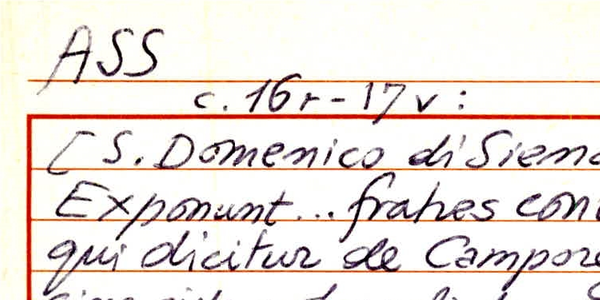 ASS
c. 16r-17v:
[S. Domenico di Siena
Exponunt... fratres con
qui dicitur de Campore